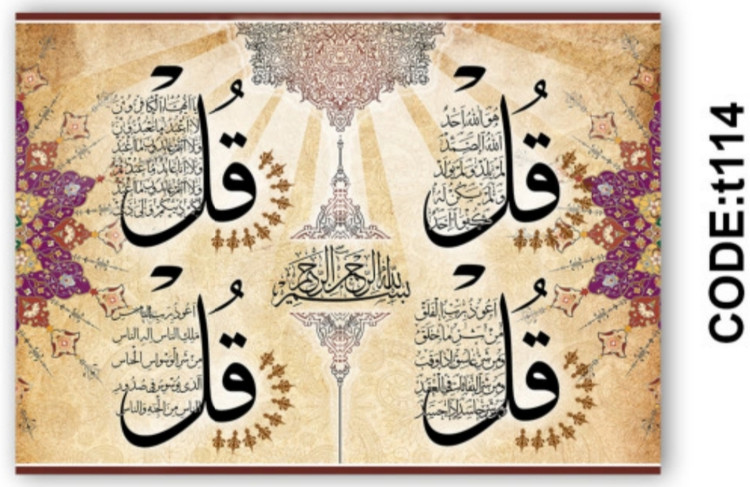 بسم الله الرحمن الرحيم
قل
هو الله احد
الله الصمد
لم يلد ولم يولد
ولم يكن له
كفوا احد
قل
يا ايها الكافرون
لا اعبد ما تعبدون
ولا انتم عابدون ما اعبد
ولا انا عابد ما عبدتم
ولا انتم عابدون ما اعبد
لكم دينكم ولي دين
قل
اعوذ برب الفلق
من شر ما خلق
ومن شر غاسق اذا وقب
ومن شر النفاثات في العقد
ومن شر حاسد اذا حسد
قل
اعوذ برب الناس
ملك الناس اله الناس
من شر الوسواس الخناس
الذي يوسوس في صدور
الناس من الجنة والناس
CODE:t114